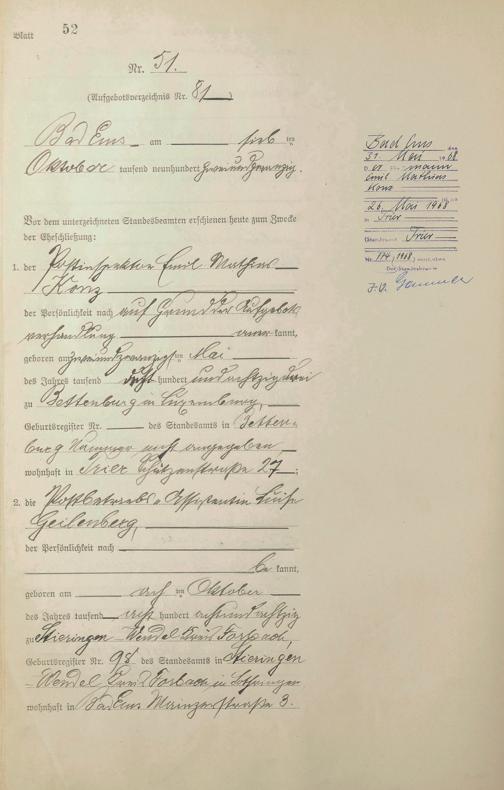 Blatt 52
Nr. 51.
(Aufgebotsverzeichnis Nr. 81)
Bad Ems am sieb ten
Oktober tausend neunhundert zweiundzwanzig.
Vor dem unterzeichneten Standesbeamten erschienen heute zum Zwecke
der Eheschließung:
1. der Postinspektor Emil Mathias
Konz
der Persönlichkeit nach auf Grund der Aufgebots
verhandlung aner kannt,
geboren am zweiundzwanzigsten Mai
des Jahres tausend acht hundert undachtzig drei
zu Bettenburg in Luxemburg,
Geburtsregister Nr. des Standesamts in Betten-
burg Nummer nicht angegeben,
wohnhaft in Trier Schützenstraße 27;
2. die Postbetriebs-Assistentin Luise
Geilenberg,
der Persönlichkeit nach
be kannt,
geboren am acht ten Oktober
des Jahres tausend acht hundert achtundachtzig
zu Stieringen-Wendel Kreis Forbach,
Geburtsregister Nr. 98 des Standesamts in Stieringen
Wendel Kreis Forbach in Lothringen
wohnhaft in Bad Ems Mainzerstraße 3.
Bad Ems, den
31. Mai 1968
mann
Emil Mathias
Konz
26. Mai 1968
in Trier
Standesamt Trier
Nr. 114/1968
Der Standesbeamte